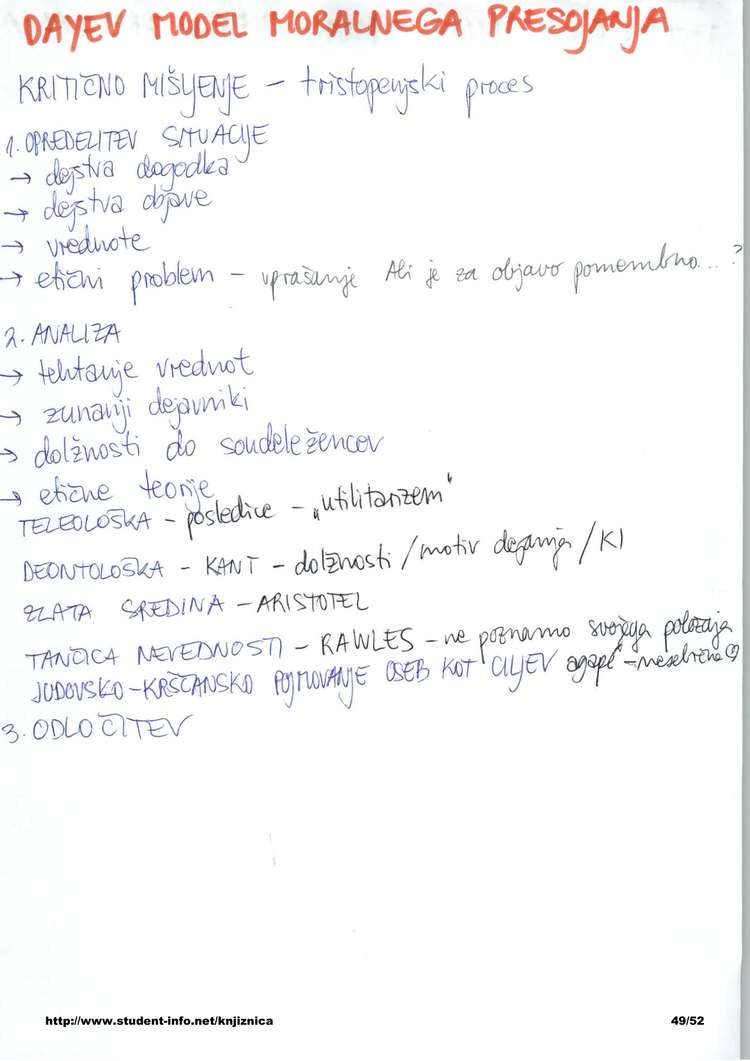 DAYEV MODEL MORALNEGA PRESOJANJA
KRITIČNO MIŠLJENJE - tristopenjski proces
1. OPREDELITEV SITUACIJE
→ dejstva dogodka
→ dejstva objave
→ vrednote
→ etični problem - vprašanje Ali je za objavo pomembno...?
2. ANALIZA
→ tehtanje vrednot
→ zunanji dejavniki
→ dolžnosti do soudeležencev
→ etične teorije
TELEOLOŠKA - posledice - „utilitarizem"
DEONTOLOŠKA - KANT - dolžnosti / motiv dejanja / KI
ZLATA SREDINA - ARISTOTEL
TANČICA NEVEDNOSTI - RAWLES - ne poznamo svojega položaja
JUDOVSKO-KRŠČANSKO POJMOVANJE OSEB KOT CILJEV agape -nesebična ♡
3. ODLOČITEV
http://www.student-info.net/knjiznica 49/52